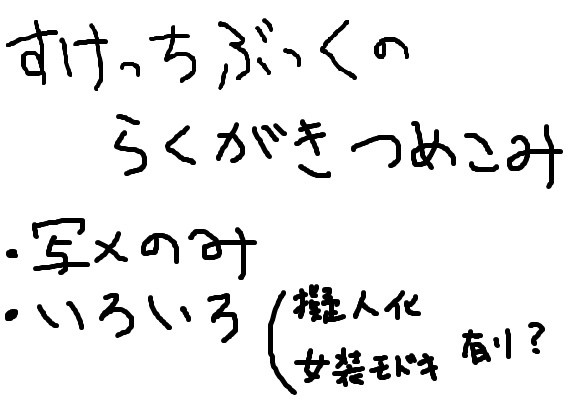 すけっちぶっくの
らくがきつめこみ
・写メのみ
・いろいろ(擬人化
女装モドキ 有り?